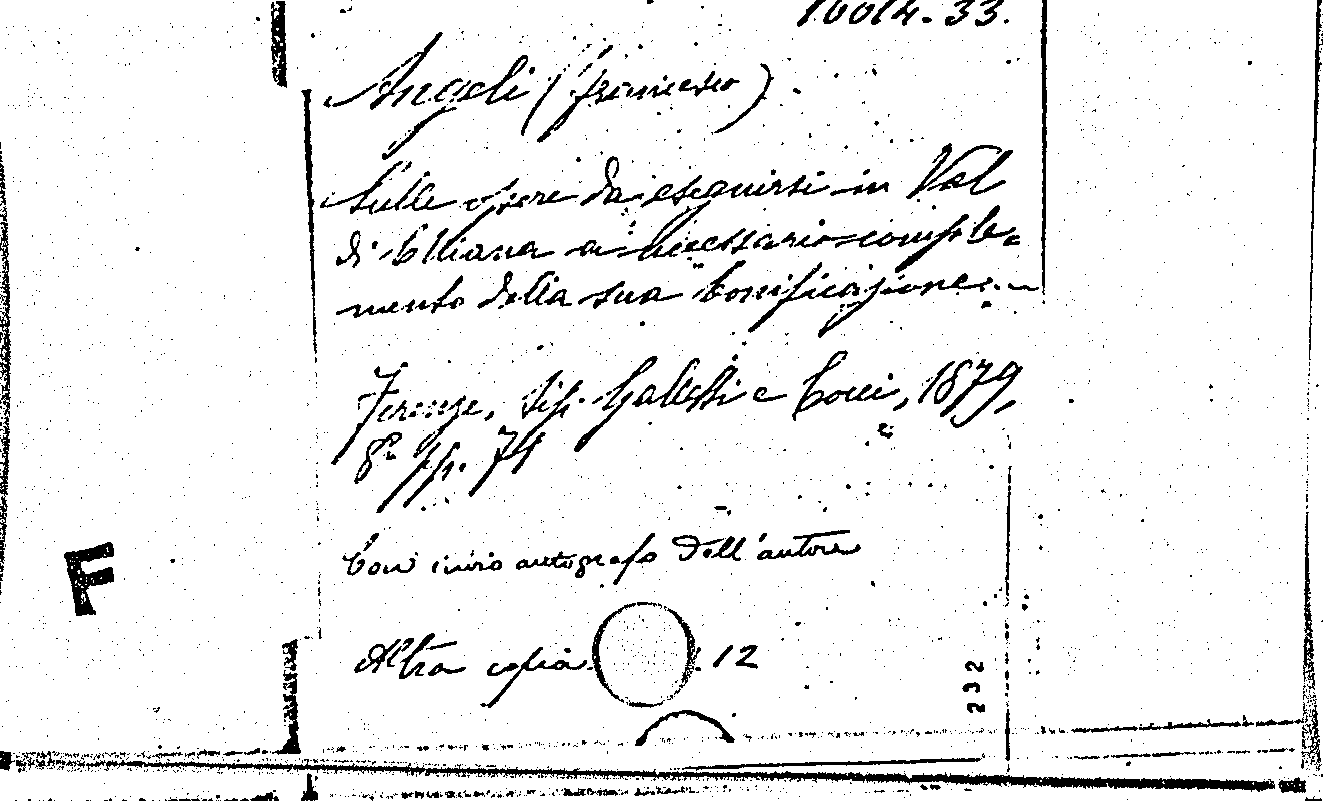 16014.33.
Angeli (Francesco).
Sulle opere da eseguirsi in Val
di Chiana a necessario comple-
mento della sua bonificazione.
Firenze, Tip. Galletti e Cocci, 1879,
8º pp. 74
Con invio autografo dell'autore
Altra copia .12
232
F